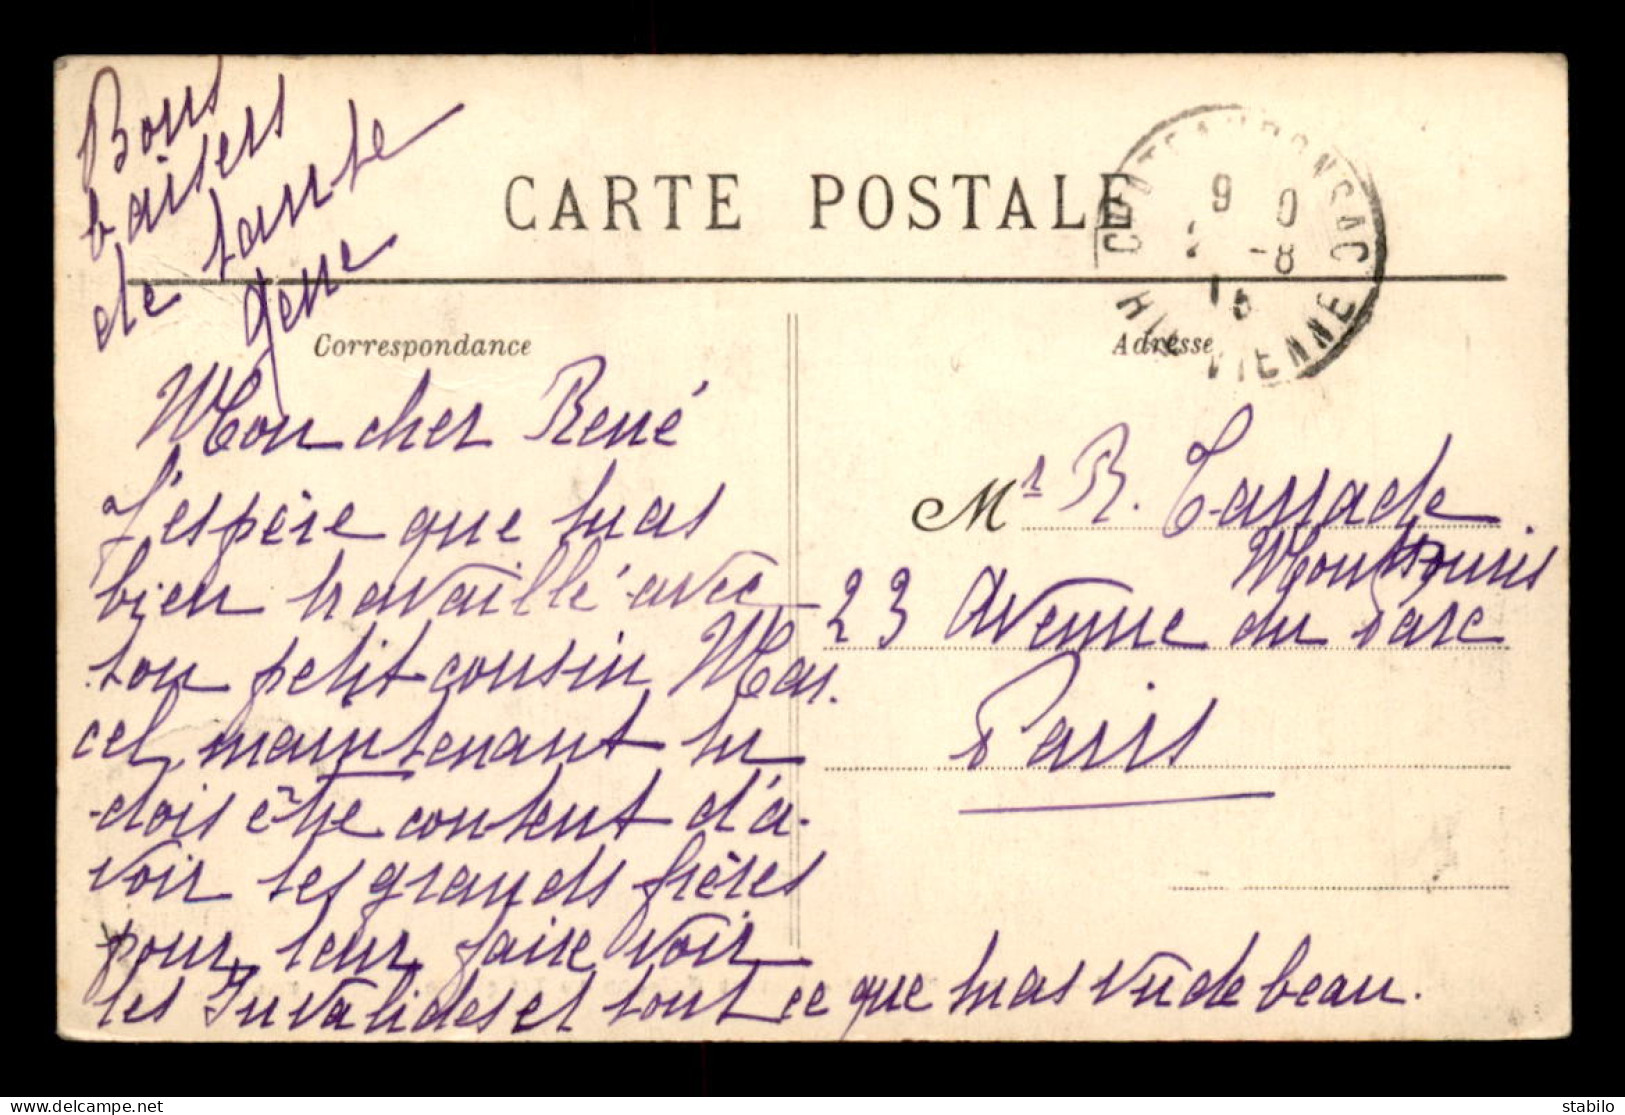 Bons
baisers
de tante
CARTE POSTALE
9 0
2 -8
15
HTE VIENNE
Correspondance
Adresse
Mon cher René
J'espère que tu as
bien travaillé avec
ton petit cousin Mar.
cel, maintenant tu
dois être content d'a-
voir tes grands frères
pour leur faire voir
les Invalides et tout ce que tu as vu de beau.
Mr R. Tassade
Montsouris
23 Avenue du Parc
Paris
stabilo